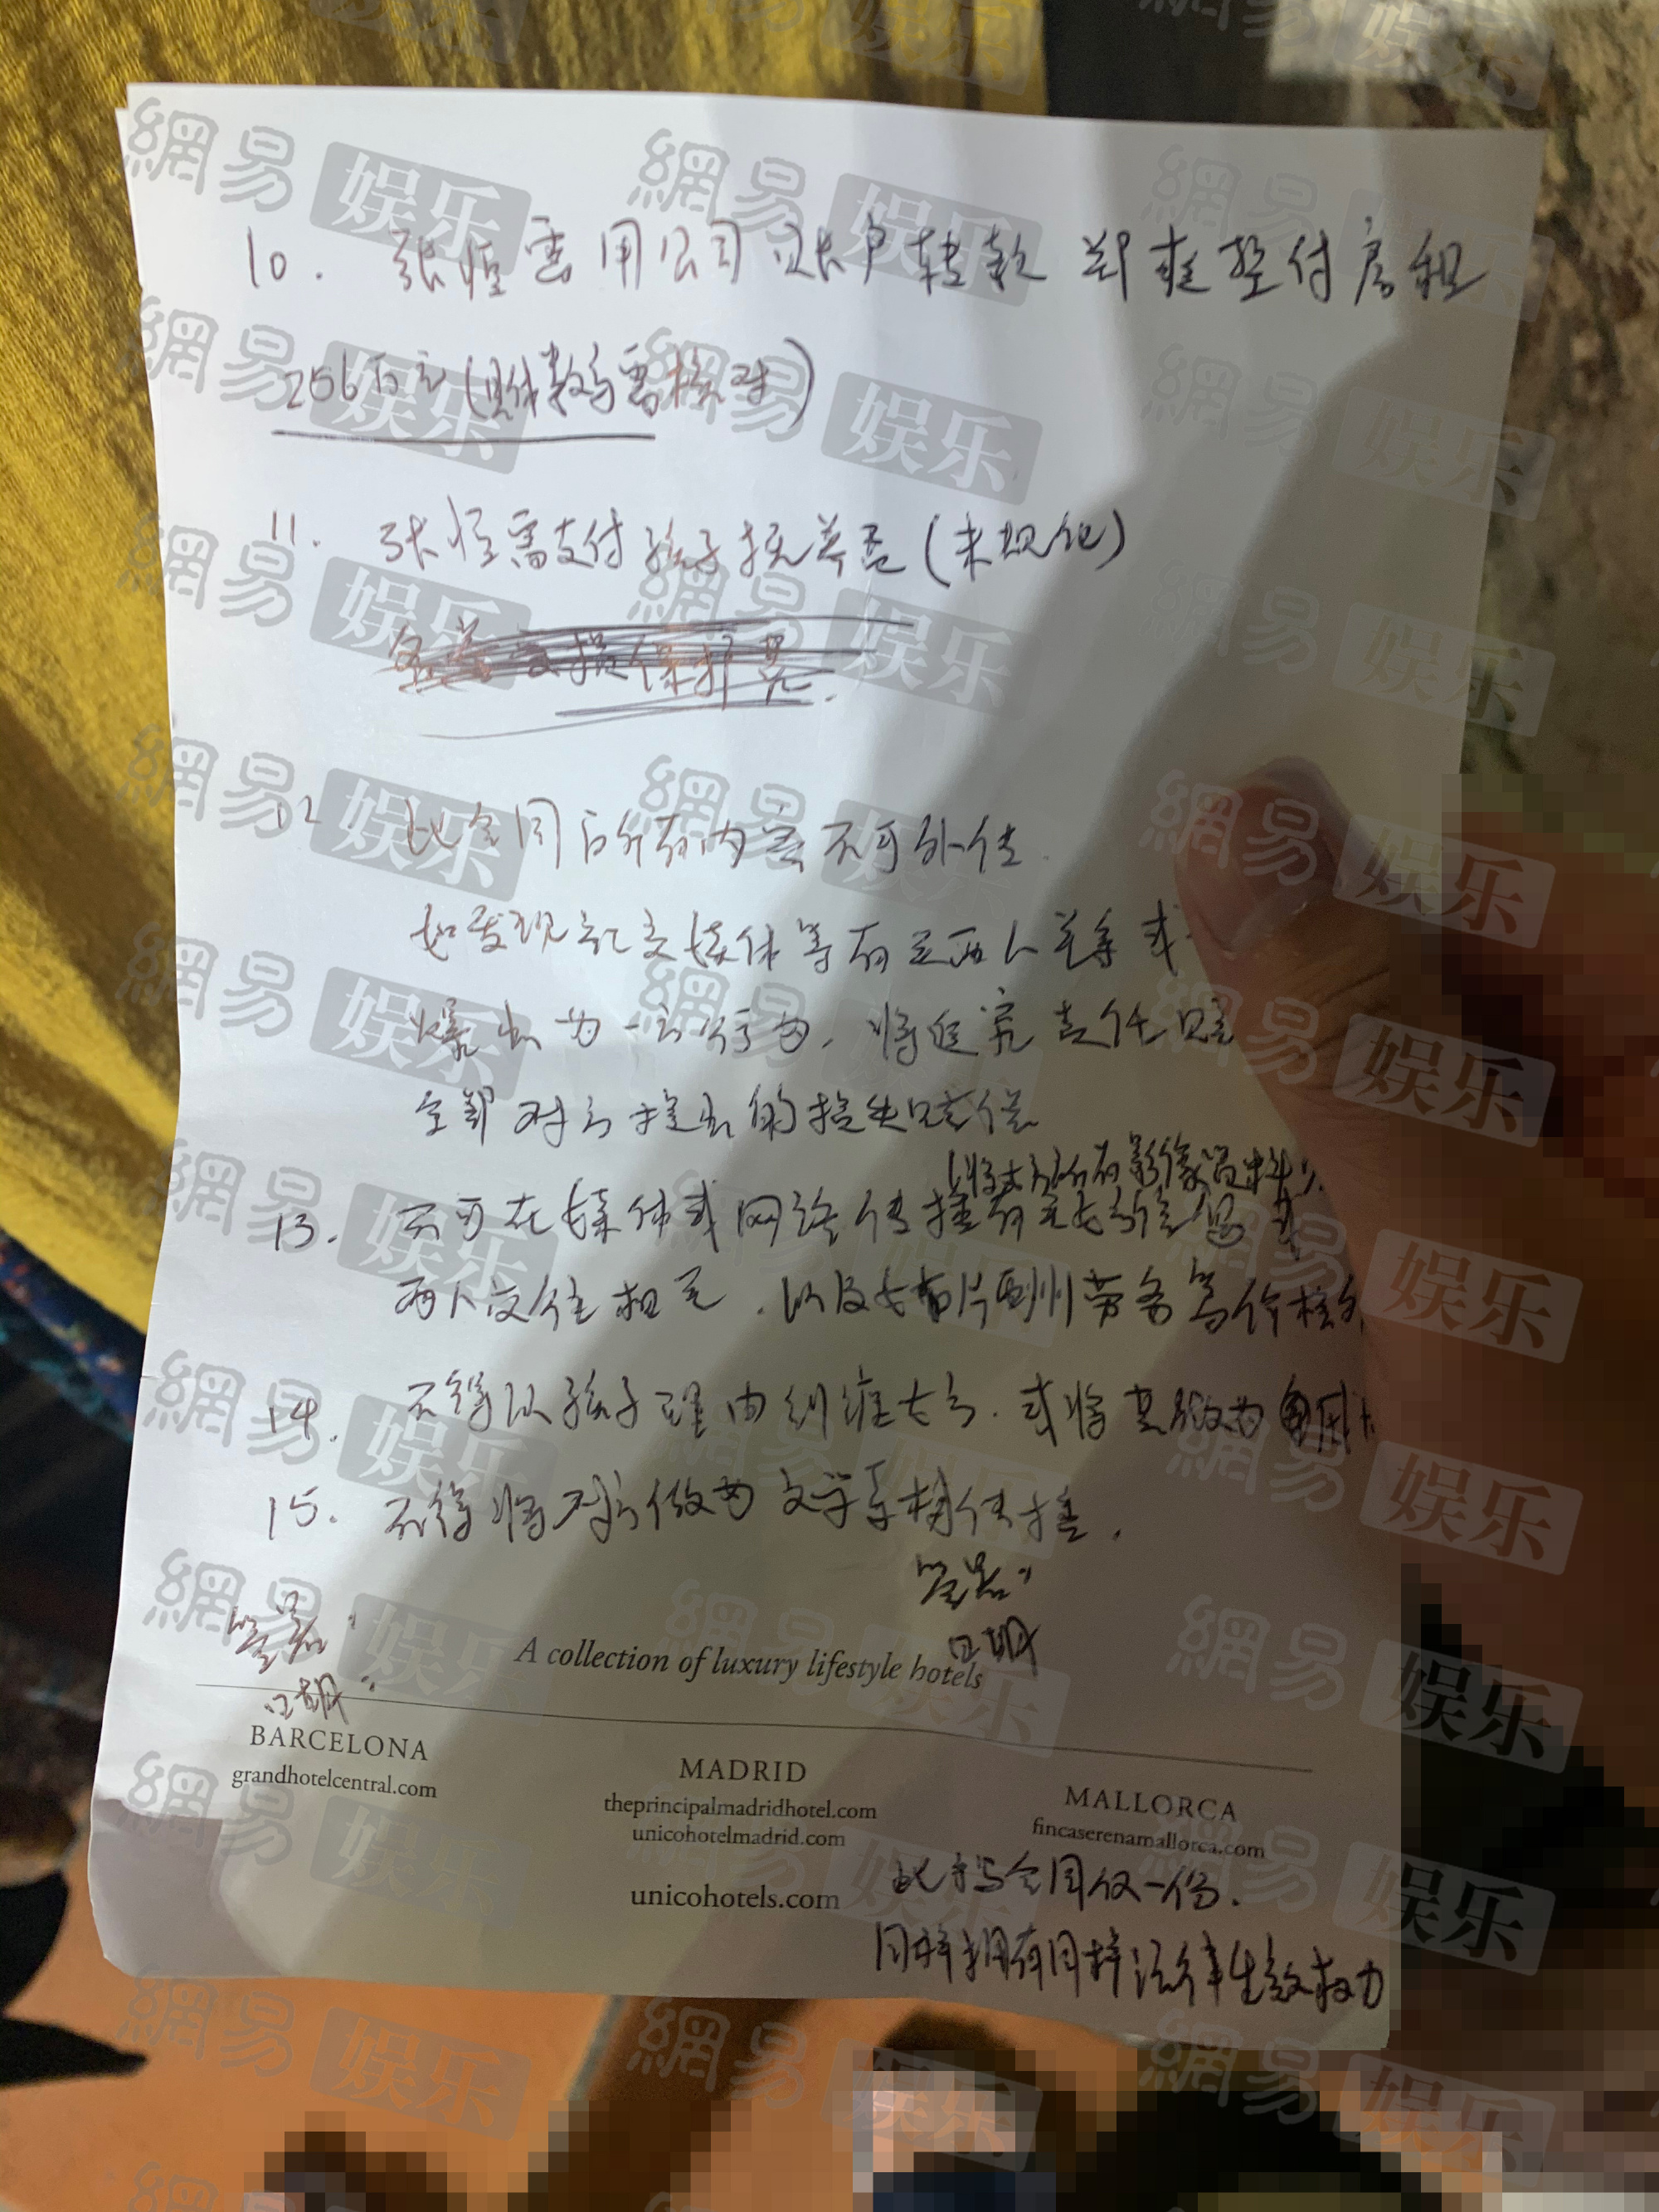 10. 张恒需用公司账户转款郑爽垫付房租
256万元(具体数字需核对)
11. 张恒需支付孩子抚养否(未规他)
12 此合同后所有内容不可外传.
如发现记交媒体等有关两人关系或
爆出为一方行为,将追究责任赔
全部对方提出的损失赔偿
(将女方所有影像资料
13. 不可在媒体或网络传播有关女方信息或
两人交往相关,以及女
14. 不得以孩子理由纠缠女方.或将其做为
15. 不得将对方做为文学素材传播.
签署:
签署:
日期
日期:
A collection of luxury lifestyle hotels
BARCELONA
grandhotelcentral.com
MADRID
theprincipalmadridhotel.com
unicohotelmadrid.com
unicohotels.com
MALLORCA
fincaserenamallorca.com
此手写合同仅一份.
同样拥有同样法律生效权力
網易娱乐